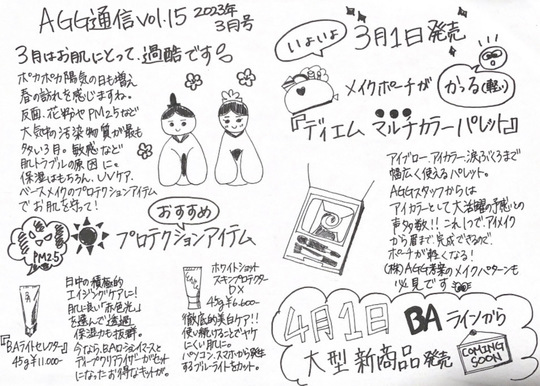 AGG通信vol.15 2023年3月号
3月はお肌にとって、過酷です
ポカポカ陽気の日も増え
春の訪れを感じますね。
反面、花粉やPM2.5など
大気物汚染物質が最も
多い3月。敏感など
肌トラブルの原因に。
保湿はもちろん、UVケア、
ベースメイクのプロテクションアイテム
でお肌を守って!
PM2.5
おすすめ
プロテクションアイテム
『BAライトセレクター』
45g ¥11.000-
日中の積極的
エイジングケアに!
肌に良い「赤色光」
を選んで透過
保湿力も抜群。
今なら、BAローショイマスと
ディープクリアライザーがセット
になったお得なキットが。
ホワイトショット
スキンプロテクター
DX
45g ¥6.600-
徹底的美白ケア!!
使い続けることでヤケ
にくい肌に。
パソコン、スマホから発生する
ブルーライトをカット。
いよいよ 3月1日発売
メイクポーチが かるくる(軽い)
『ディエム マルチカラーパレット』
アイブロー、アイカラー、涙ぶくろまで
幅広く使えるパレット。
AGGスタッフからは
アイカラーとして大活躍の予感との
声多数!!これ1つで、アイメイク
から眉まで完成できるので
ポーチが軽くなる!
(株)AGG考案のメイクパターンも
必見です
4月1日 BAラインから
大型新商品発売
COMING SOON